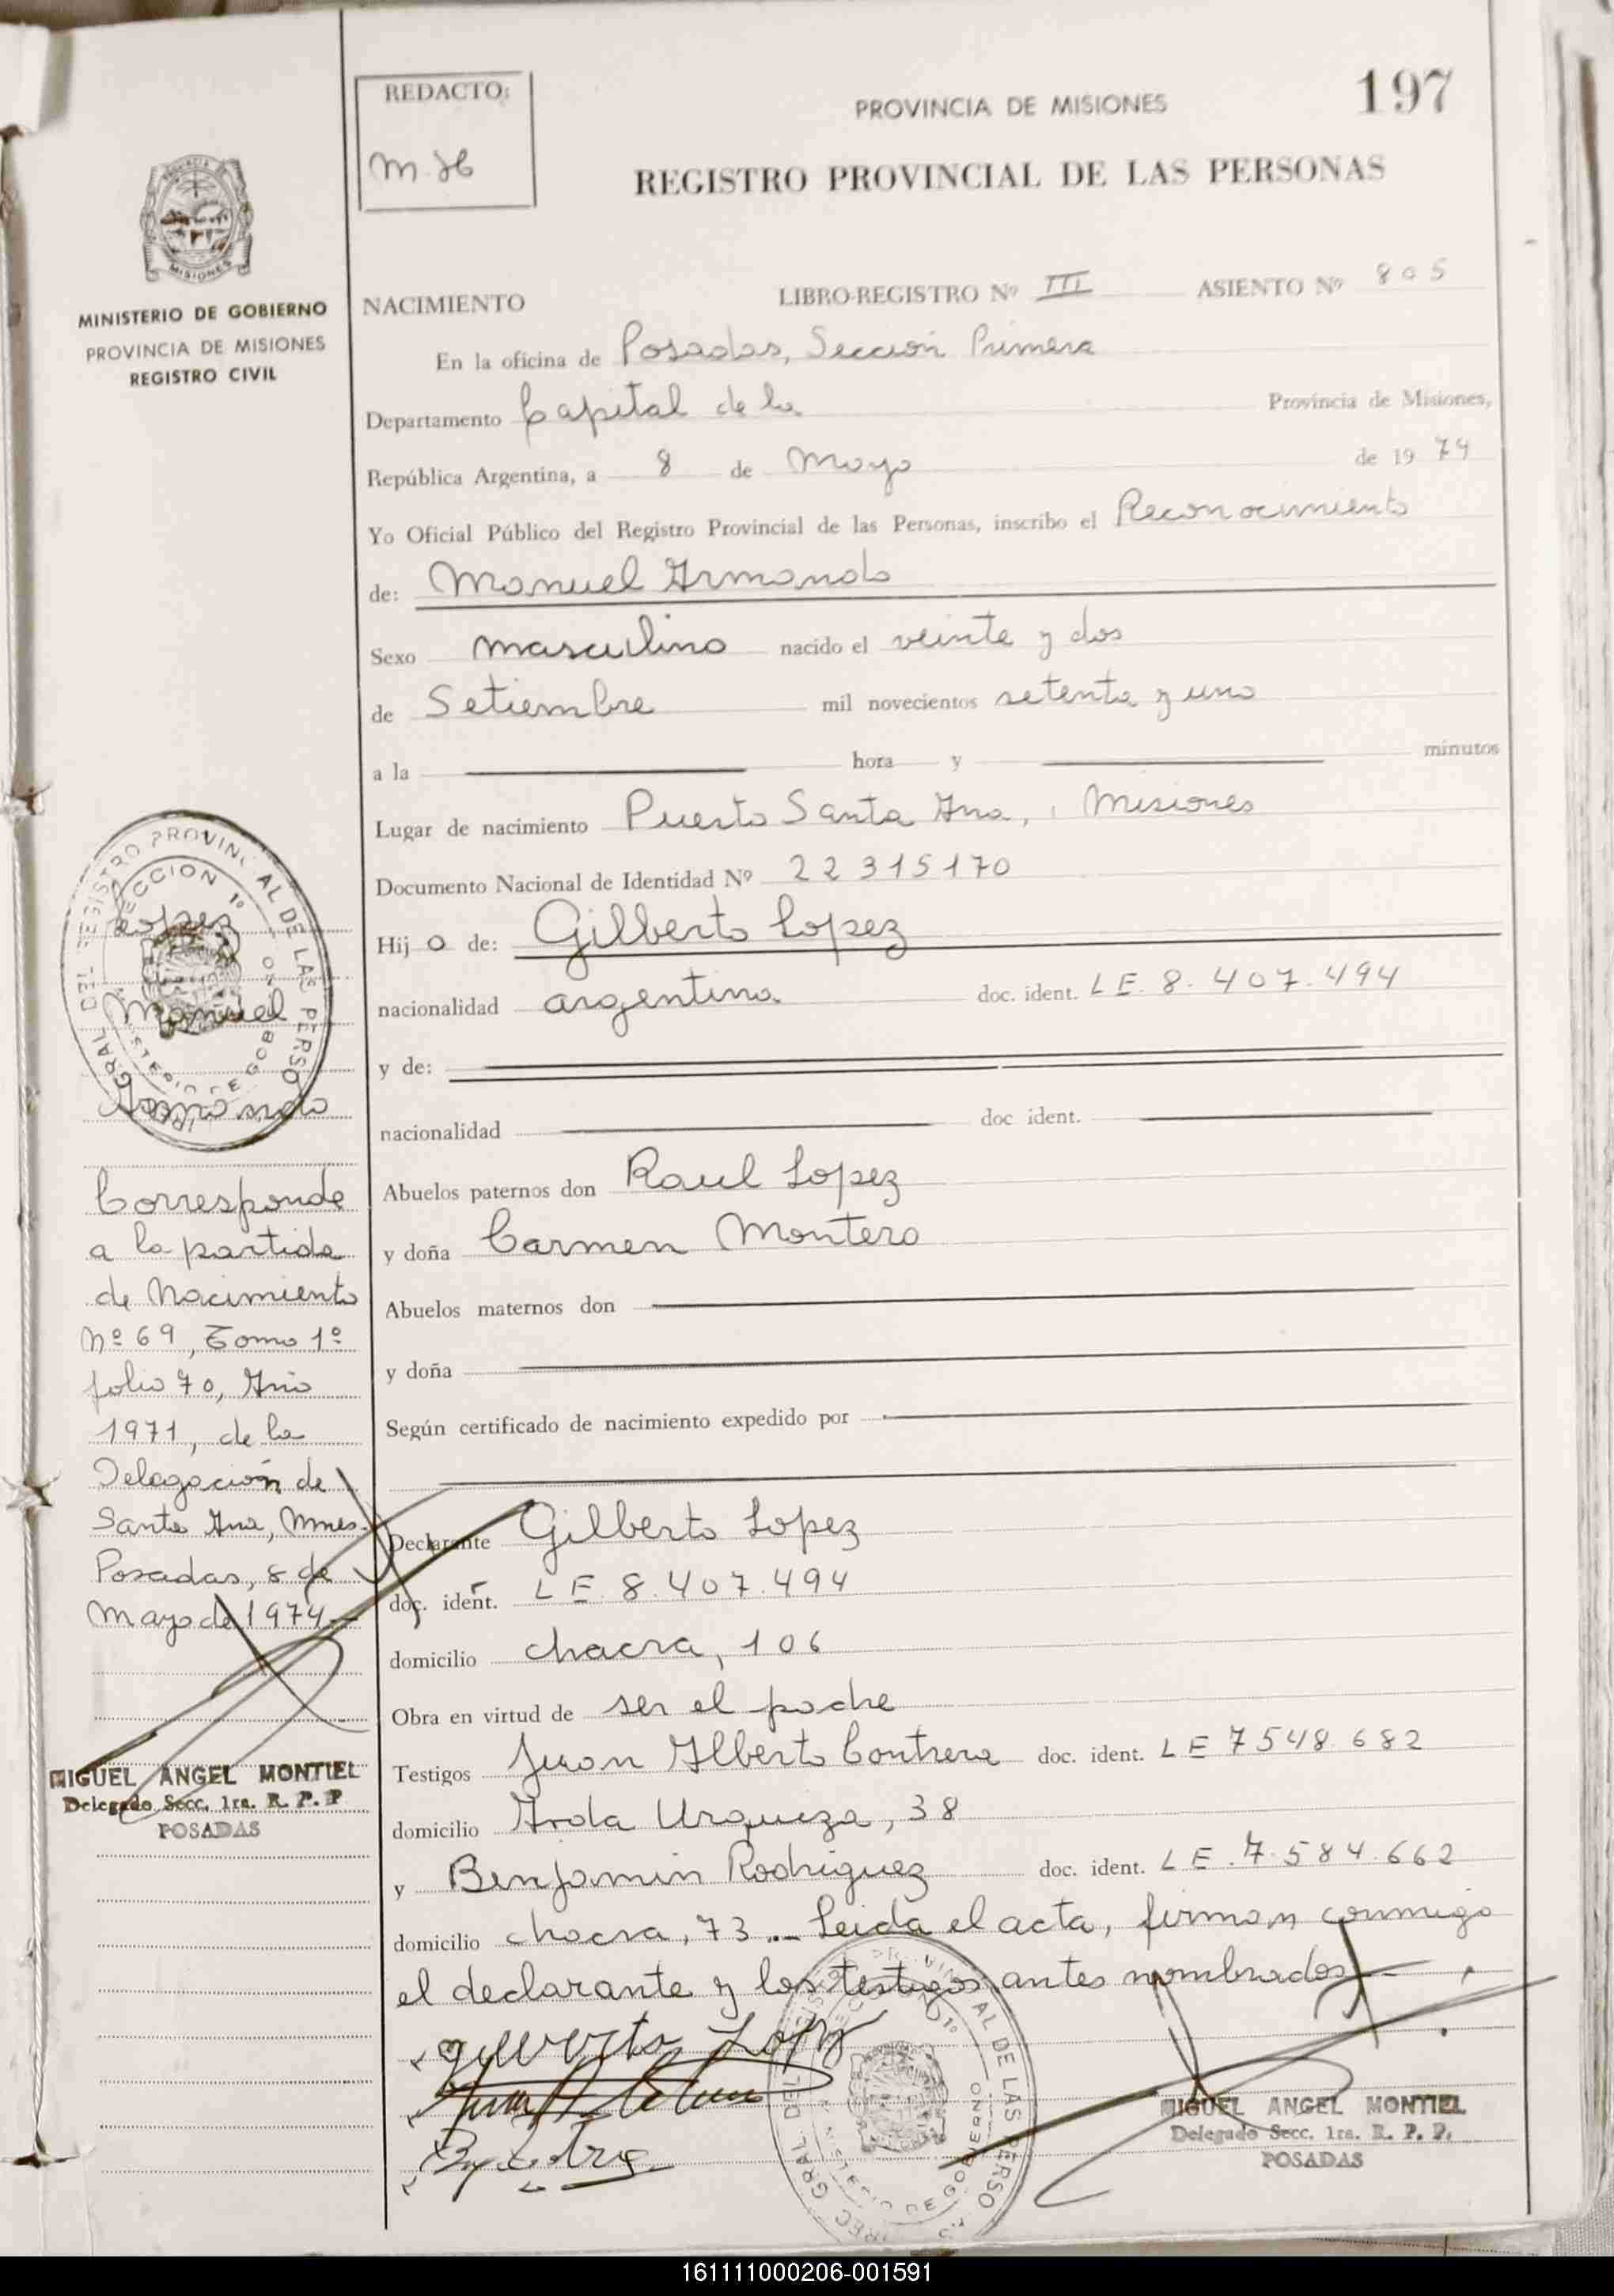 197
REDACTO:
M.H
PROVINCIA DE MISIONES
REGISTRO PROVINCIAL DE LAS PERSONAS
MISIONES
MINISTERIO DE GOBIERNO
PROVINCIA DE MISIONES
REGISTRO CIVIL
NACIMIENTO LIBRO-REGISTRO Nº III ASIENTO Nº 805
En la oficina de Posadas, Sección Primera
Departamento Capital de la Provincia de Misiones,
República Argentina, a 8 de Mayo de 1974
Yo Oficial Público del Registro Provincial de las Personas, inscribo el Reconocimiento
de: Manuel Armando
Sexo masculino nacido el veinte y dos
de Setiembre mil novecientos setenta y uno
a la hora y minutos
Lugar de nacimiento Puerto Santa Ana, Misiones
Documento Nacional de Identidad Nº 22315170
Hijo de: Gilberto Lopez
nacionalidad argentina doc. ident. LE. 8.407.494
y de:
nacionalidad doc ident.
Abuelos paternos don Raul Lopez
y doña Carmen Montero
Abuelos maternos don
y doña
Según certificado de nacimiento expedido por
Declarante Gilberto Lopez
doc. ident. LE. 8.407.494
domicilio chacra, 106
Obra en virtud de ser el padre
Testigos Juan Alberto Contrera doc. ident. LE 7548.682
domicilio Avda Urquiza, 38
y Benjamin Rodriguez doc. ident. LE. 7.584.662
domicilio chacra, 73.- Leida el acta, firman conmigo
el declarante y los testigos antes nombrados.-
Gilberto Lopez
MIGUEL ANGEL MONTIEL
Delegado Secc. 1ra. R. P. P.
POSADAS
Lopez
Manuel
Armando
Corresponde
a la partida
de Nacimiento
Nº 69, Tomo 1º
folio 70, Año
1971, de la
Delegación de
Santa Ana, Mnes.
Posadas, 8 de
Mayo de 1974.-
MIGUEL ANGEL MONTIEL
Delegado Secc. 1ra. R. P. P
POSADAS
161111000206-001591